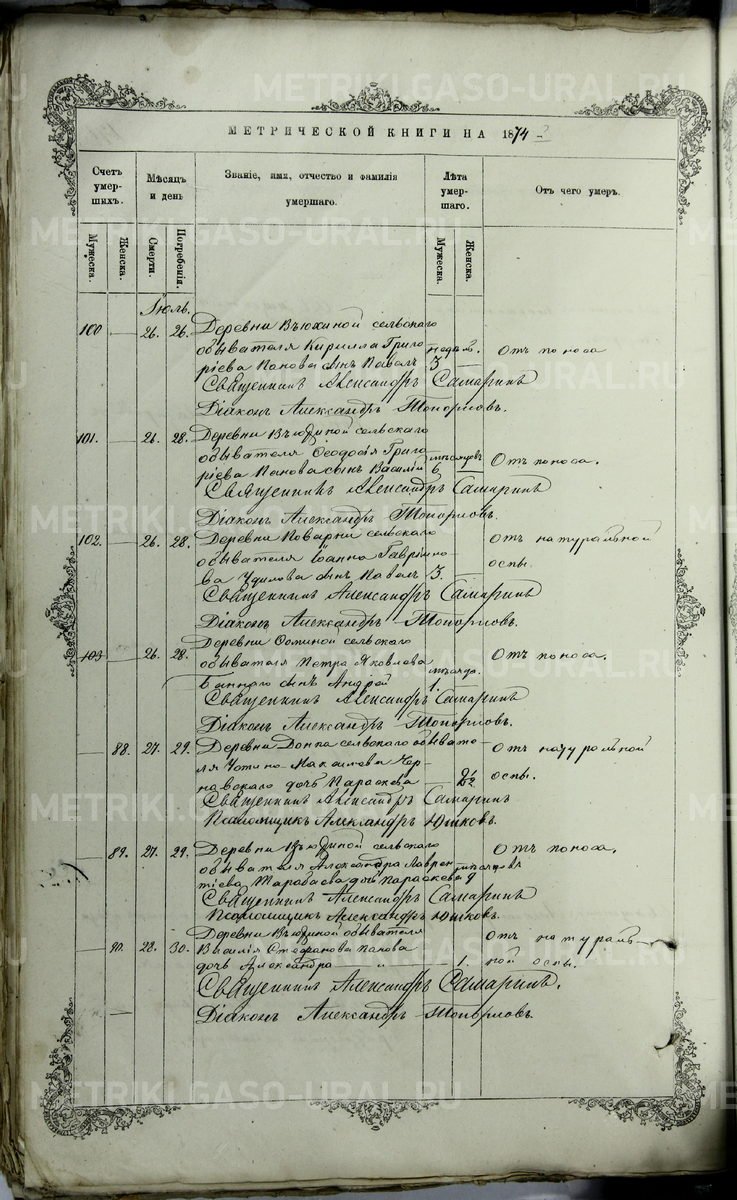 МЕТРИЧЕСКОЙ КНИГИ НА 1874
Счетъ умершихъ.
Мѣсяцъ и день
Званіе, имя, отчество и фамилія умершаго.
Лѣта умершаго.
Отъ чего умеръ.
Мужеска.
Женска.
Смерти.
Погребенія.
Мужеска.
Женска.
Іюль.
100 26. 26. Деревни Вьюхиной сельскаго
обывателя Кирилла Григо недѣль. Отъ поноса
ріева Панова сынъ Павелъ 3
Священникъ Александръ Самаринъ
Діаконъ Александръ Топорковъ.
101. 26. 28. Деревни Вьюхиной сельскаго
обывателя Ѳеодосія Григо мѣсяцовъ Отъ поноса.
ріева Панова сынъ Василій 6
Священникъ Александръ Самаринъ
Діаконъ Александръ Топорковъ.
102. 26. 28. Деревни Поварни сельскаго Отъ натуральной
обывателя Іоанна Гаврило оспы.
ва Удилова сынъ Павелъ 3.
Священникъ Александръ Самаринъ
Діаконъ Александръ Топорковъ.
103 26. 28. Деревни сельскаго
обывателя Петра Яковлева Отъ поноса.
сынъ Андрей 1.
Священникъ Александръ Самаринъ
Діаконъ Александръ Топорковъ.
88. 27. 29. Деревни сельскаго обывате Отъ натуральной
ля оспы.
дочь Параскева 2 1/2
Священникъ Александръ Самаринъ
Псаломщикъ Александръ Юшковъ.
89. 27. 29. Деревни Вьюхиной сельскаго Отъ поноса.
обывателя Александра Лаврен мѣсяцовъ
тіева Тарабаева дочь Параскева 9
Священникъ Александръ Самаринъ
Псаломщикъ Александръ Юшковъ.
90. 28. 30. Деревни Вьюхиной обывателя Отъ натураль-
Василія Стефанова Панова
дочь Александра 1. ной оспы.
Священникъ Александръ Самаринъ.
Діаконъ Александръ Топорковъ.
METRIKI.GASO-URAL.RU